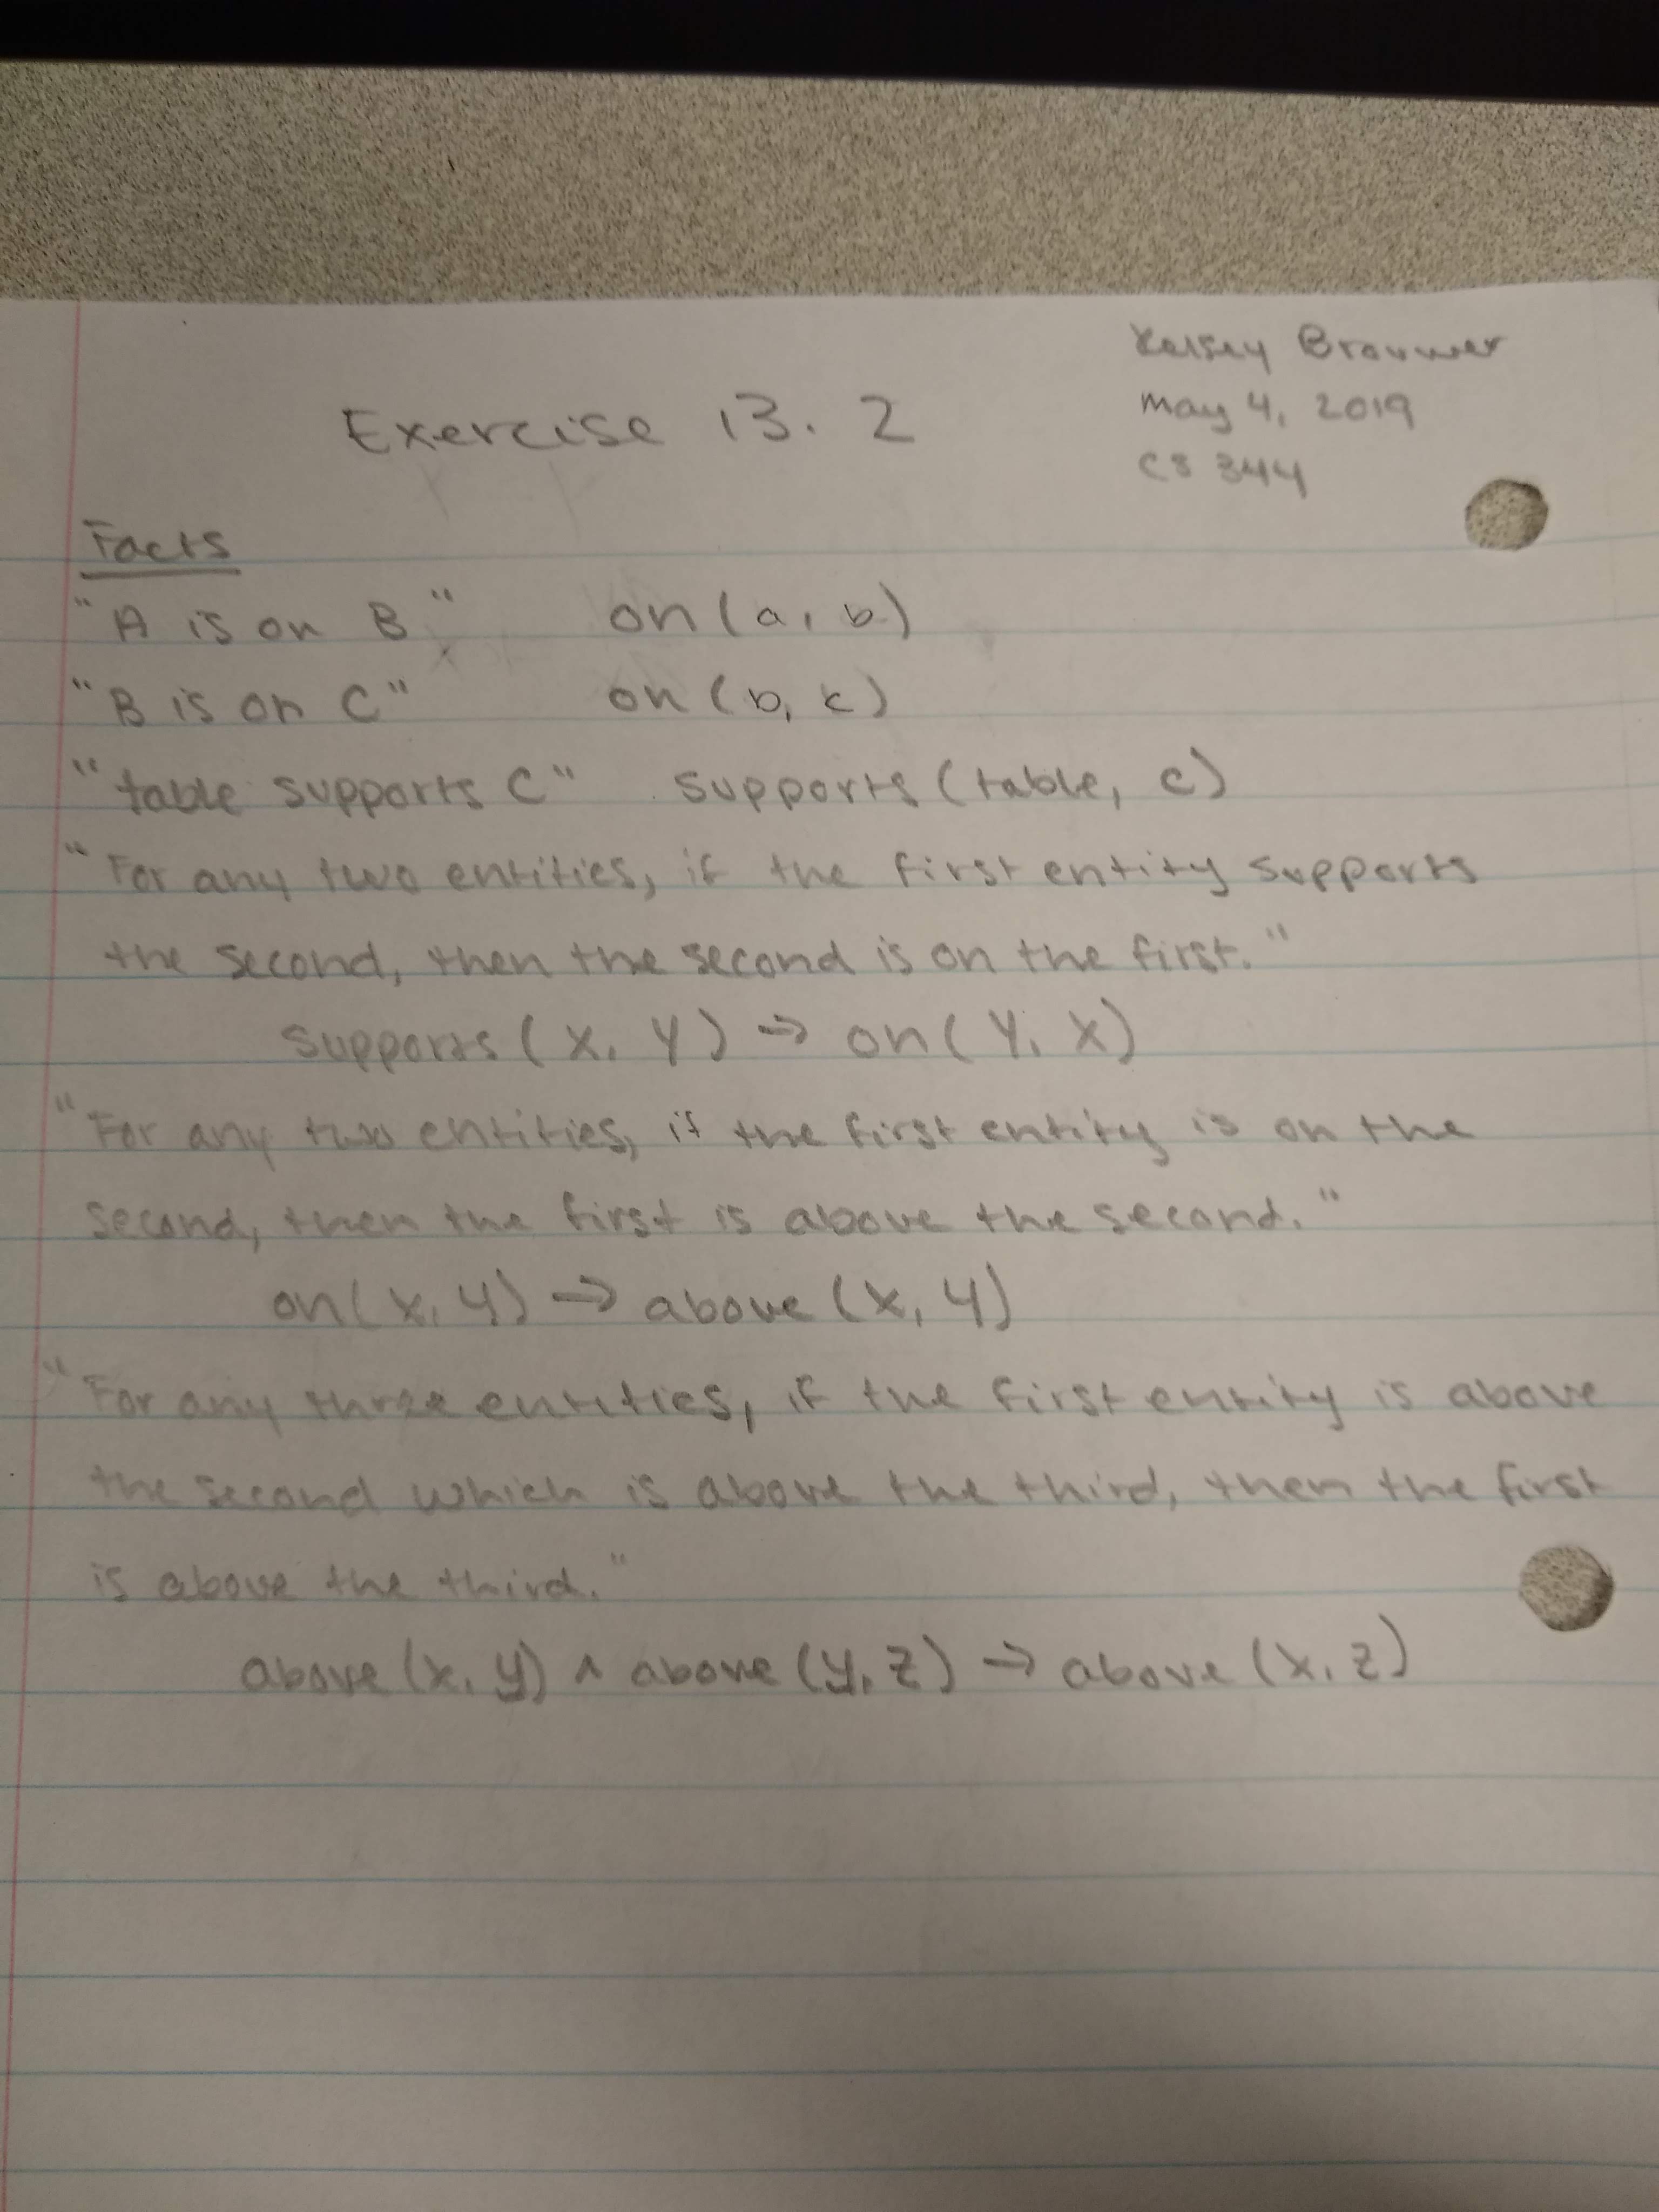 Kelsey Brouwer
May 4, 2019
CS 344
Exercise 13.2
Facts
"A is on B" on(a, b)
"B is on C" on(b, c)
"table supports C" supports(table, c)
"For any two entities, if the first entity supports
the second, then the second is on the first."
supports(x, y) → on(y, x)
"For any two entities, if the first entity is on the
second, then the first is above the second."
on(x, y) → above(x, y)
"For any three entities, if the first entity is above
the second which is above the third, then the first
is above the third."
above(x, y) ∧ above(y, z) → above(x, z)